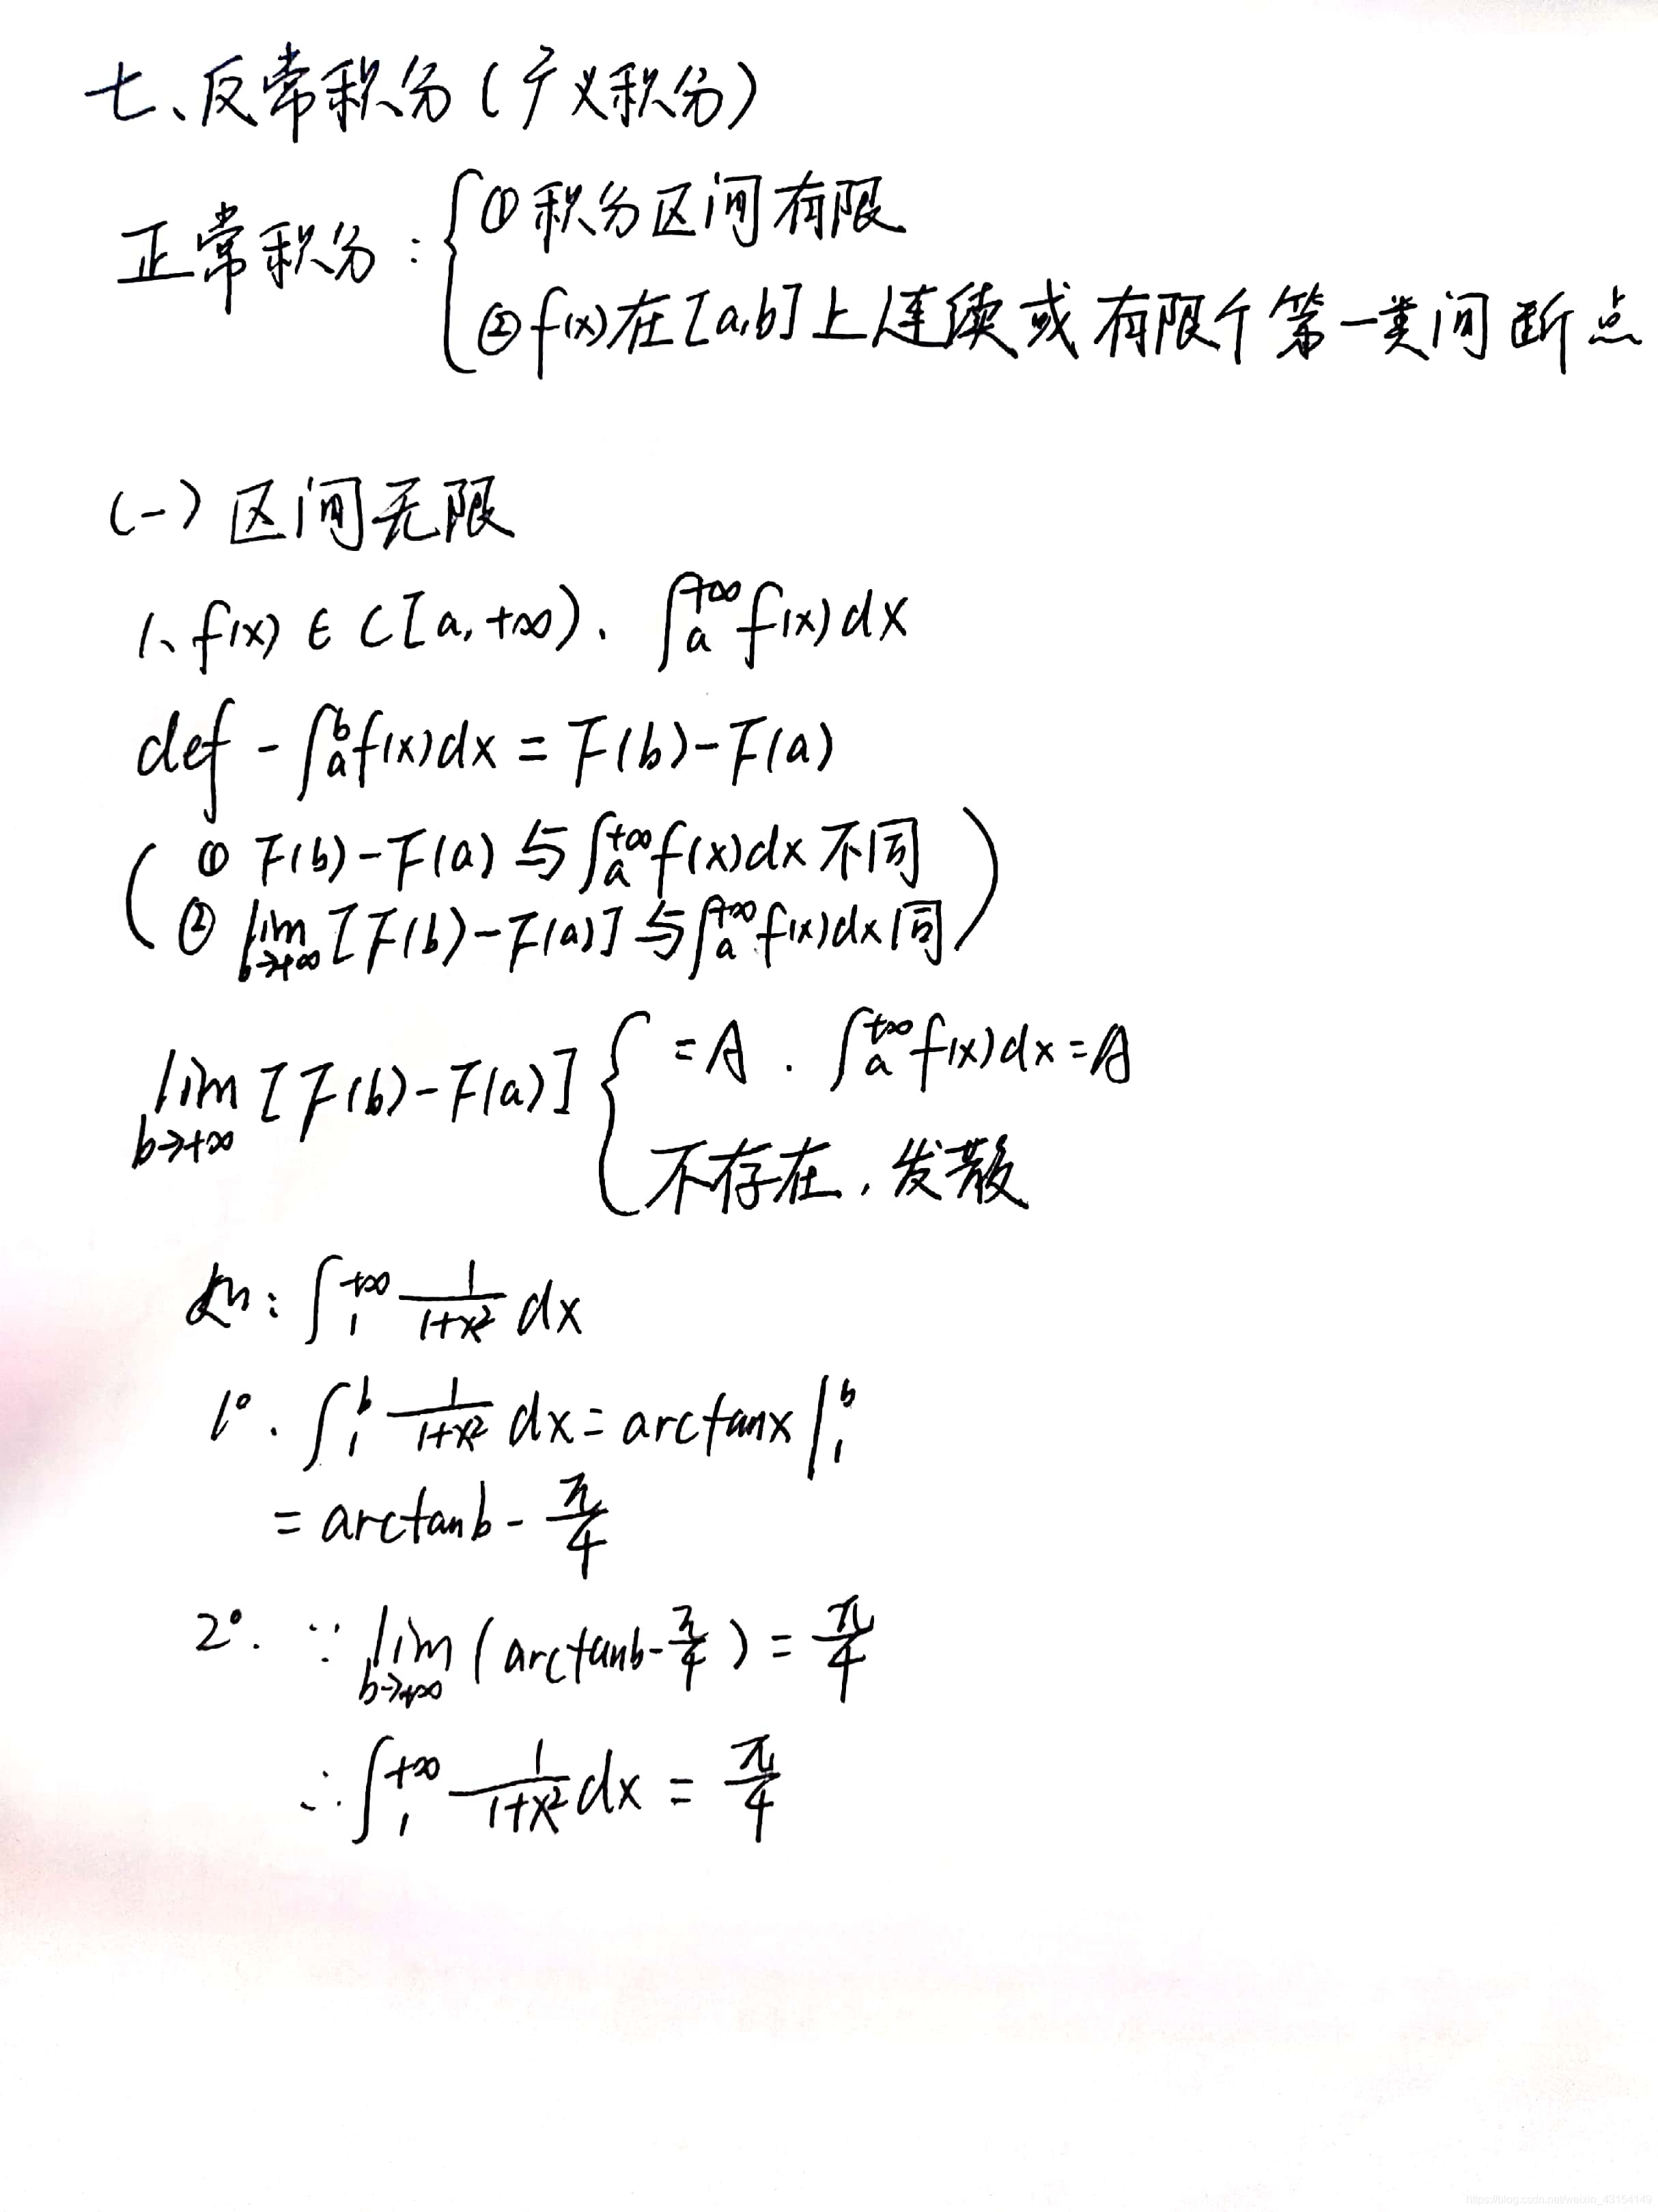 七、反常积分(广义积分)
正常积分:{①积分区间有限
②f(x)在[a,b]上连续或有限个第一类间断点
(一)区间无限
1、f(x)∈C[a,+∞). ∫_a^{+∞} f(x)dx
def - ∫_a^b f(x)dx = F(b)-F(a)
(① F(b)-F(a) 与 ∫_a^{+∞} f(x)dx 不同
② lim_{b→+∞} [F(b)-F(a)] 与 ∫_a^{+∞} f(x)dx 同)
lim_{b→+∞} [F(b)-F(a)] { =A . ∫_a^{+∞} f(x)dx=A
不存在,发散
如: ∫_1^{+∞} 1/(1+x²) dx
1°. ∫_1^b 1/(1+x²) dx = arctanx |_1^b
= arctanb - π/4
2°. ∵ lim_{b→+∞} (arctanb - π/4) = π/4
∴ ∫_1^{+∞} 1/(1+x²) dx = π/4
https://blog.csdn.net/weixin_43154149